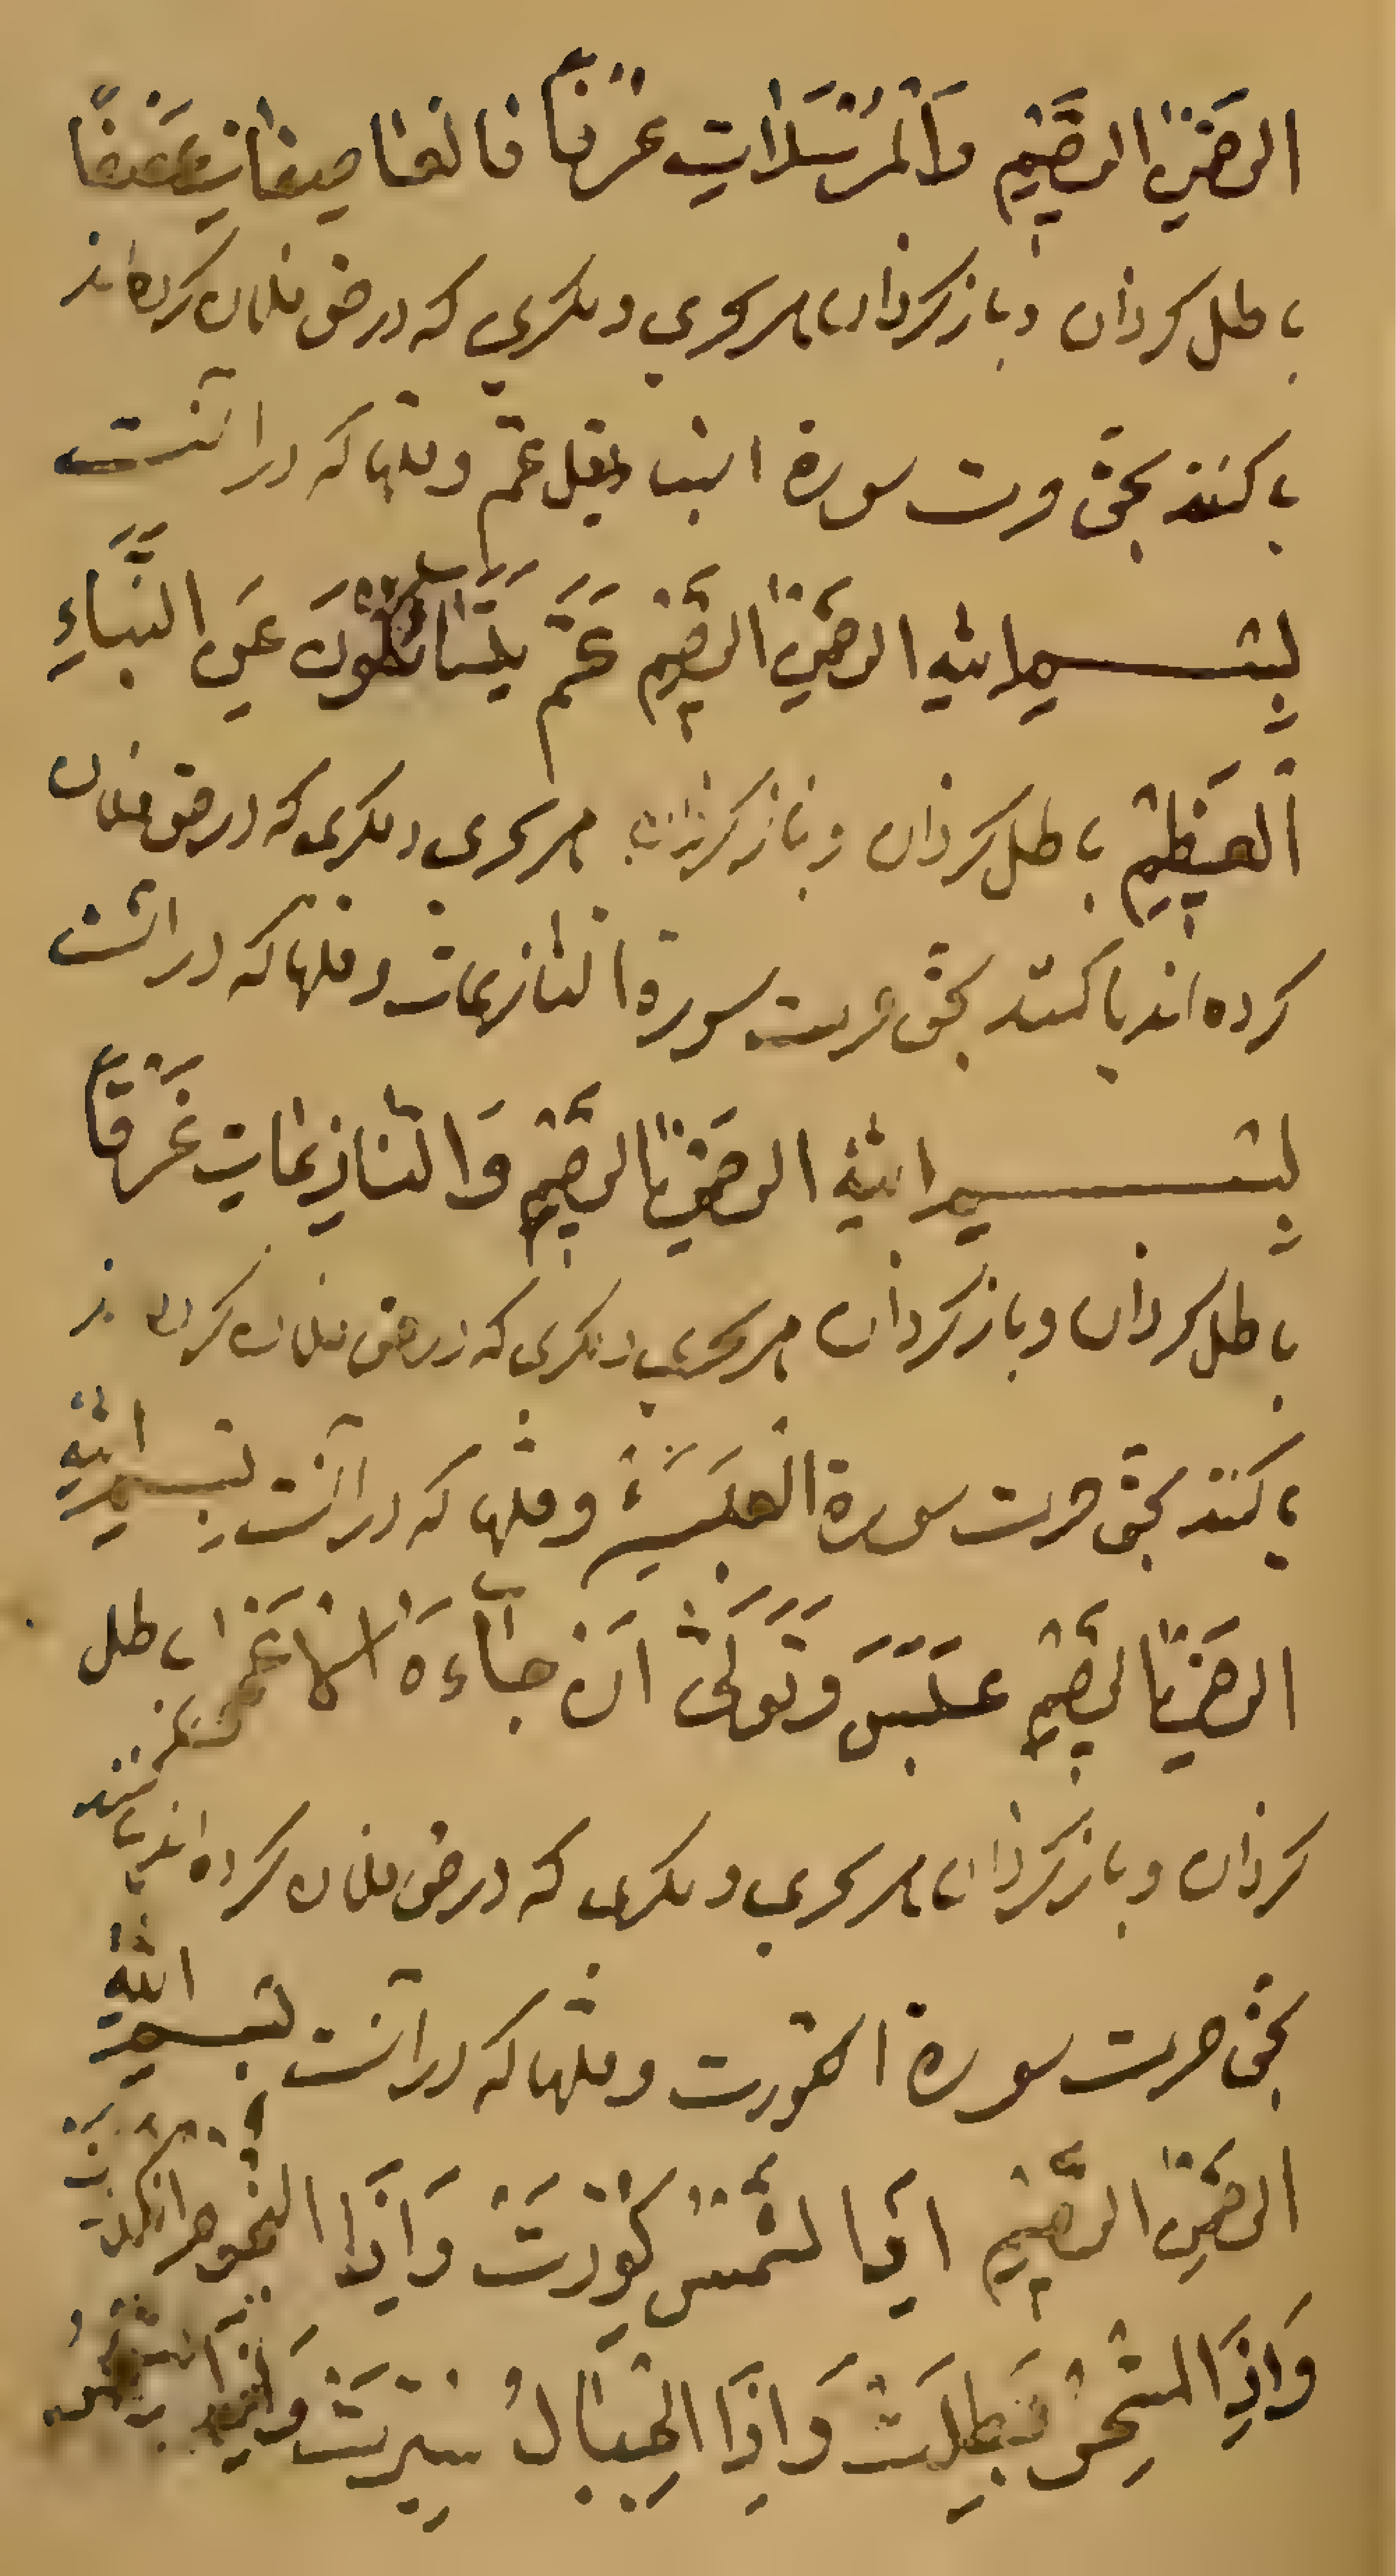 الرحمن الرحیم وَالْمُرْسَلَاتِ عُرْفًا فَالْعَاصِفَاتِ عَصْفًا
باطل کردان و باز کردان هر سحری و مکری که در حق فلان کرده‌اند
یا کنند بحق حرمت سورة النبا و فضلها که در آنست
بِسْمِ اللهِ الرحمن الرحیم عَمَّ يَتَسَائَلُونَ عَنِ النَّبَاءِ
الْعَظِيمِ باطل کردان و باز کردان هر سحری و مکری که در حق فلان
کرده‌اند یا کنند بحق حرمت سورة النازعات و فضلها که در آنست
بِسْمِ اللهِ الرحمن الرحیم وَالنَّازِعَاتِ غَرْقًا
باطل کردان و باز کردان هر سحری و مکری که در حق فلان کرده‌اند
یا کنند بحق حرمت سورة العبس و فضلها که در آنست بسم الله
الرحمن الرحیم عَبَسَ وَتَوَلَّىٰ اَنْ جَاءَهُ الْاَعْمَىٰ باطل
کردان و باز کردان هر سحری و مکری که در حق فلان کرده‌اند یا کنند
بحق حرمت سورة الکورت و فضلها که در آنست بسم الله
الرحمن الرحیم اِذَا الشَّمْسُ كُوِّرَتْ وَاِذَا النُّجُومُ انْكَدَرَتْ
وَاِذَا السِّحْرُ بَطِلَتْ وَاِذَا الْجِبَالُ سُيِّرَتْ